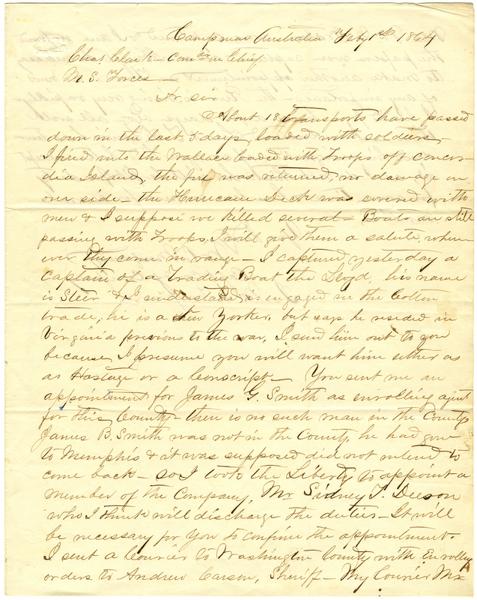 Camp near Australia Feby 1st 1864
Chas Clark - Com in Chief
M. S. Forces -
Dr sir
About 18 transports have passed
down in the last 5 days loaded with soldiers
I fired into the Wallace loaded with Troops off Concor-
dia Island, the fire was returned, no damage on
our side - the Hurricane Deck was covered with
men & I suppose we killed several - Boats are still
passing with Troops, I will give them a salute, when
ever they come in range - I captured yesterday a
Captain of a Trading Boat the Lloyd, his name
is & I understand is engaged in the Cotton
trade, he is a New Yorker, but says he resided in
Virginia previous to the war, I send him out to you
because I presume you will want him either as
as Hostage or a Conscript - You sent me an
appointment for James G. Smith as enrolling agent
for this County - there is no such man in the County
James B. Smith was not in the County, he had gone
to Memphis & it was supposed did not intend to
come back - so I took the Liberty to appoint a
member of the Company, Mr Sidney T.
who I think will discharge the duties - It will
be necessary for you to confirm the appointment.
I sent a Courier to Washington County with Enrolling
orders to Andrew Carson, Sheriff - My Courier Mr